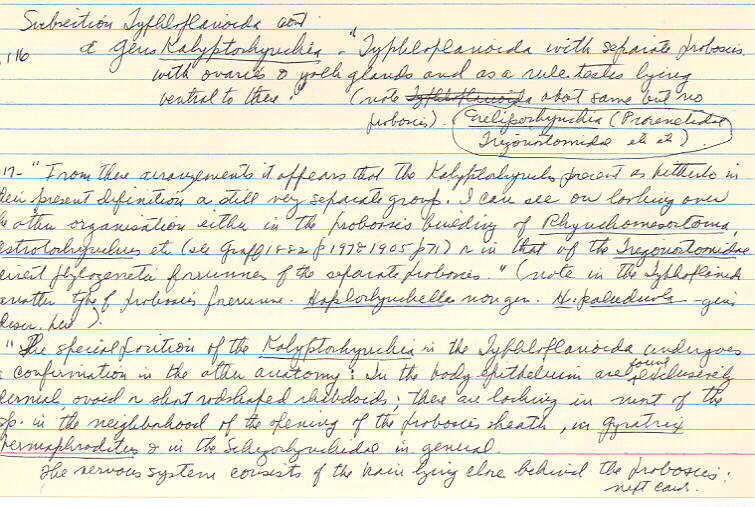 Subsection Typhloplanoida cont
, 116 & Gens Kalyptorhynchia - "Typhloplanoida with separate proboscis.
with ovaries & yolk glands and as a rule testes lying
ventral to these." (note Typhloplanoida abot same but no
proboscis). (Prosenetidae
Trigonostomida etc etc)
17- "From these arrangements it appears that the Kalyptorhynchs present as hitherto in
their present definition a still very separate group. I can see on looking over
the other organisation either in the proboscis building of Rhynchomesostoma,
astrotorhynchus etc (see Graff 1882 p 197 & 1905 p 71) or in that of the Trigonostomidae
direct phylogenetic forrunners of the separate proboscis." (note in the Typhloplanids
another type of proboscis forerunne. Haplorhynchella nov gen. H. paludicola - gives
descr. here).
"The special position of the Kalyptorhynchia in the Typhloplanoida undergoes
a confirmation in the other anatomy: In the body epithelium are found exclusively
dermal ovoid or short rod shaped rhabdoids; these are lacking in most of the
sp. in the neighborhood of the opening of the proboscis sheath, in Gyratrix
hermaphroditus & in the Schizorhynchidae in general.
The nervous system consists of the brain lying close behind the proboscis;
next card.